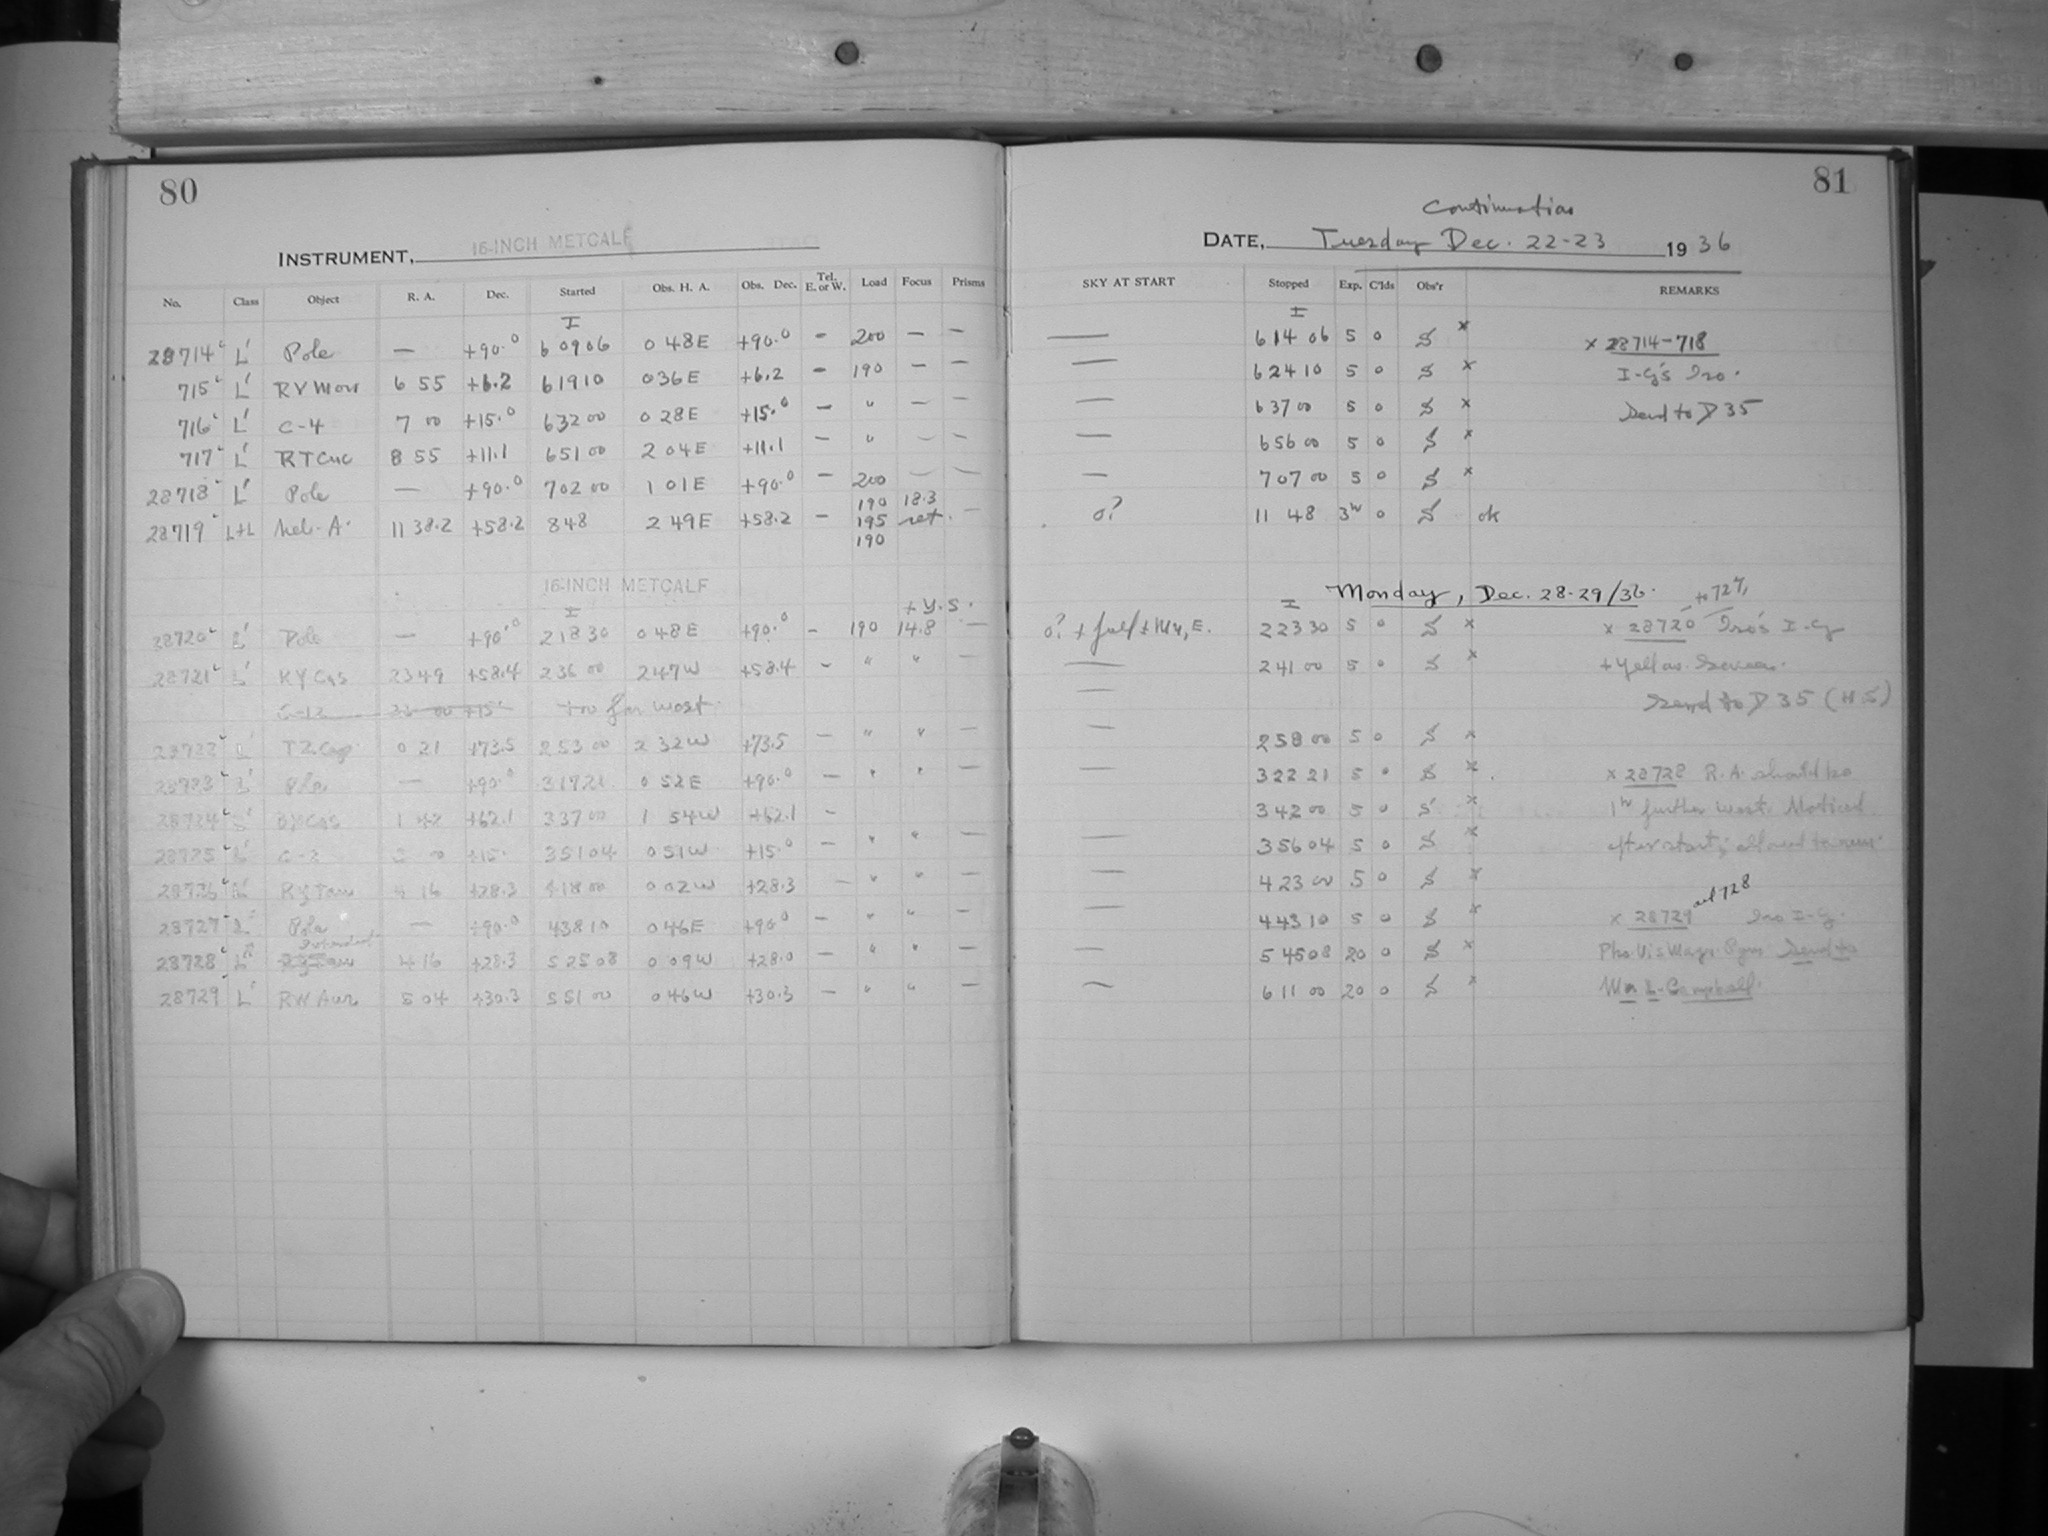 80
INSTRUMENT, 16-INCH METCALF
No. Class Object R. A. Dec. Started Obs. H. A. Obs. Dec. Tel. E. or W. Load Focus Prisms
I
28714 L' Pole — +90.0 6 09 06 0 48E +90.0 - 200 — —
715 L' RV Mon 6 55 +6.2 6 19 10 0 36E +6.2 - 190 — —
716 L' C-4 7 00 +15.0 6 32 00 0 28E +15.0 — " — —
717 L' RT Cnc 8 55 +11.1 6 51 00 2 04E +11.1 — " — —
28718 L' Pole — +90.0 7 02 00 1 01E +90.0 — 200 — —
190 18.3
28719 L+L Neb. A. 11 38.2 +58.2 8 48 2 49E +58.2 — 195 ret. —
190
16-INCH METCALF
I + Y.S.
28720 L' Pole — +90.0 2 18 30 0 48E +90.0 - 190 14.8 —
28721 L' KY Cas 23 49 +58.4 2 36 00 2 47W +58.4 - " " —
too far west
28722 L' TZ Cep 0 21 +73.5 2 53 00 2 32W +73.5 — " " —
28723 L' Pole — +90.0 3 17 21 0 52E +90.0 — " " —
28724 1 42 +62.1 3 37 00 1 54W +62.1 —
28725 L' 0 +15. 3 51 04 0 51W +15.0 — " " —
28726 L' RY Tau 4 16 +28.3 4 18 00 0 02W +28.3 — " " —
28727 L' Pole — +90.0 4 38 10 0 46E +90.0 — " " —
28728 4 16 +28.3 5 25 08 0 09W +28.0 — " " —
28729 L' RW Aur 5 04 +30.3 5 51 00 0 46W +30.3 — " " —
81
Continuation
DATE, Tuesday Dec. 22-23 1936
SKY AT START Stopped Exp. C'lds Obs'r REMARKS
I
— 6 14 06 5 0 S x x 28714-718
— 6 24 10 5 0 S x I-G's Iro.
— 6 37 00 5 0 S x Send to D 35
— 6 56 00 5 0 S x
— 7 07 00 5 0 S x
0? 11 48 3h 0 S ok
I Monday, Dec. 28-29/36. to 727,
2 23 30 5 0 S x x 28720 Iro's I-G
— 2 41 00 5 0 S x + Yellow Screen.
— Send to D 35 (H.S)
— 2 58 00 5 0 S x
— 3 22 21 5 0 S x x 28728 R.A. should be
3 42 00 5 0 S x 1h further west. Noticed
— 3 56 04 5 0 S x after start; allowed to run.
— 4 23 00 5 0 S x and 728
— 4 43 10 5 0 S x x 28729 Iro I-G.
— 5 45 08 20 0 S x Pho. Vis Mags. Pgm. Send to
— 6 11 00 20 0 S x L. Campbell.